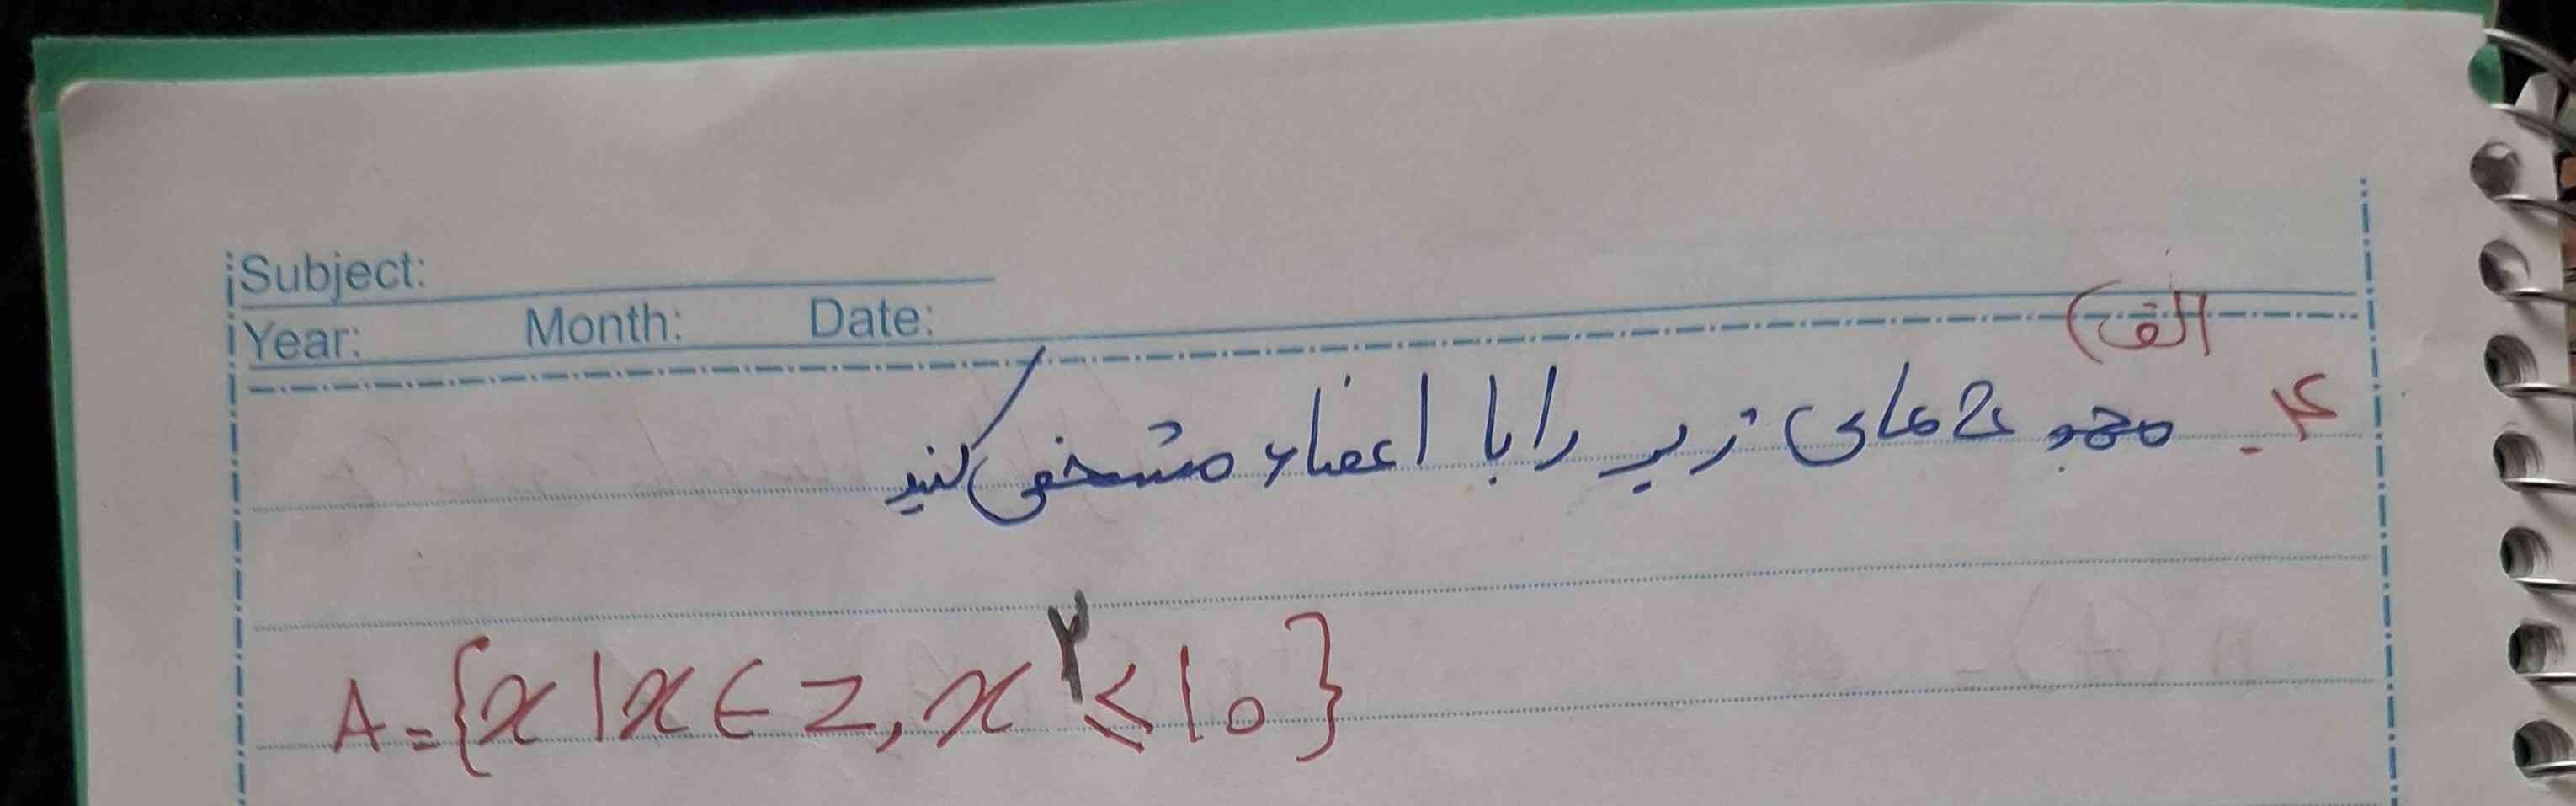 Subject:
Year: Month: Date:
الف)
۴- مجموعه های زیر را با اعضاء مشخص کنید
A={x|x∈Z, x^۲≤10}